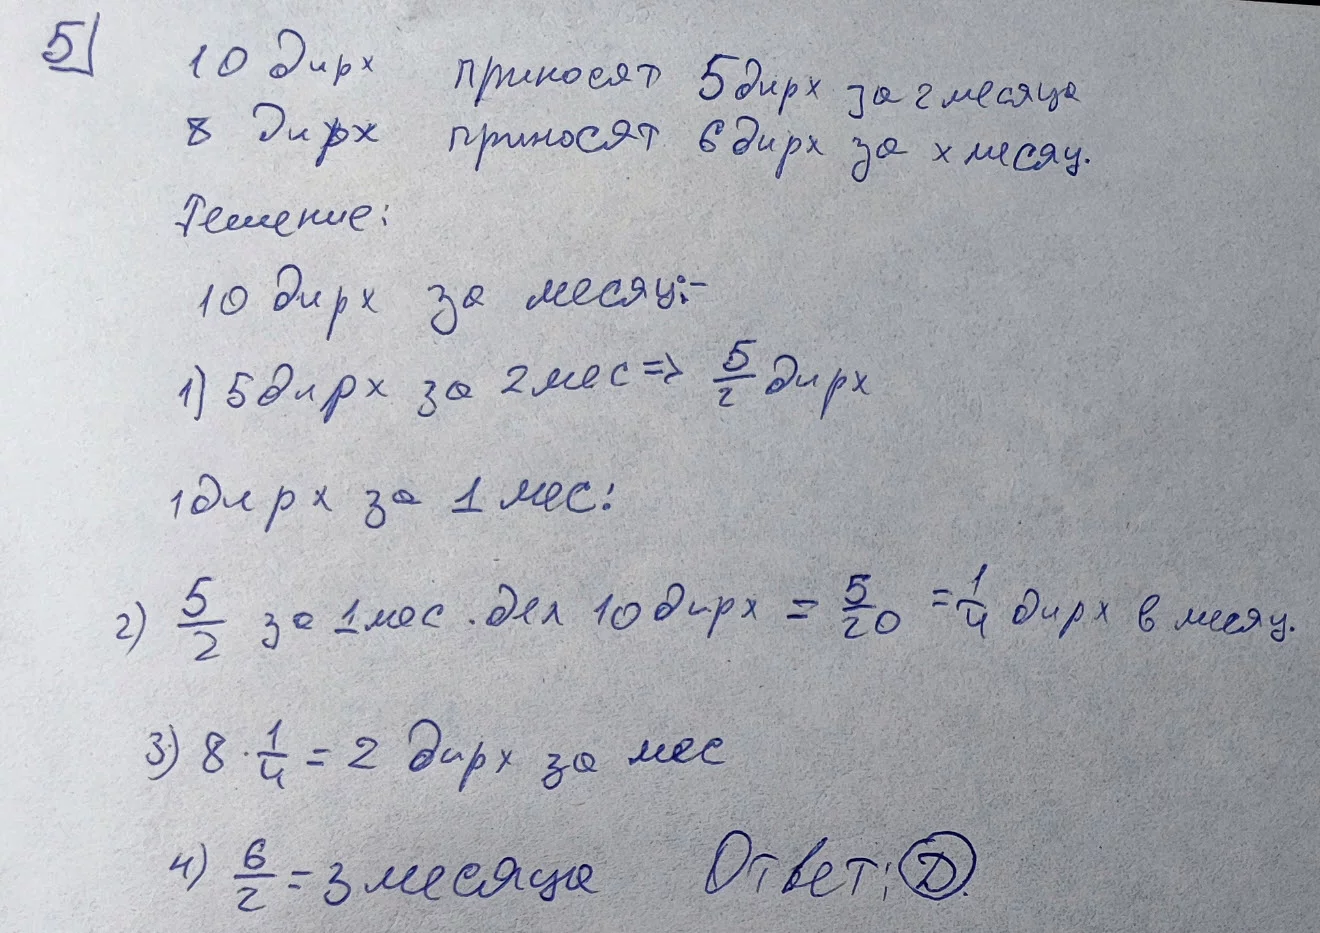 5
10 дирх приносят 5 дирх за 2 месяца
8 дирх приносят 6 дирх за x месяц.
Решение:
10 дирх за месяц:-
1) 5 дирх за 2 мес => 5/2 дирх
1 дирх за 1 мес:
2) 5/2 за 1 мес. дел 10 дирх = 5/20 = 1/4 дирх в месяц.
3) 8 · 1/4 = 2 дирх за мес
4) 6/2 = 3 месяца Ответ: D